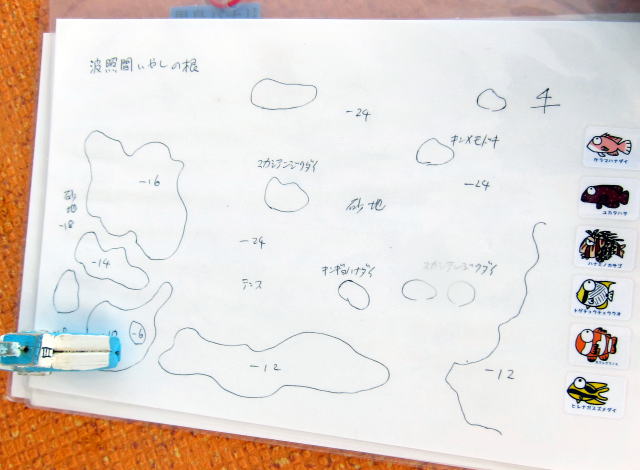 波照間いやしの根
-24
キンメモドキ
-24
スカシテンジクダイ
-16
砂地
砂地
-18
-24
-14
キンギョハナダイ
スカシテンジクダイ
-6
-12
-12
ケラマハナダイ
ユカタハタ
ハナミノカサゴ
トゲチョウチョウウオ
ヒレナガスズメダイ